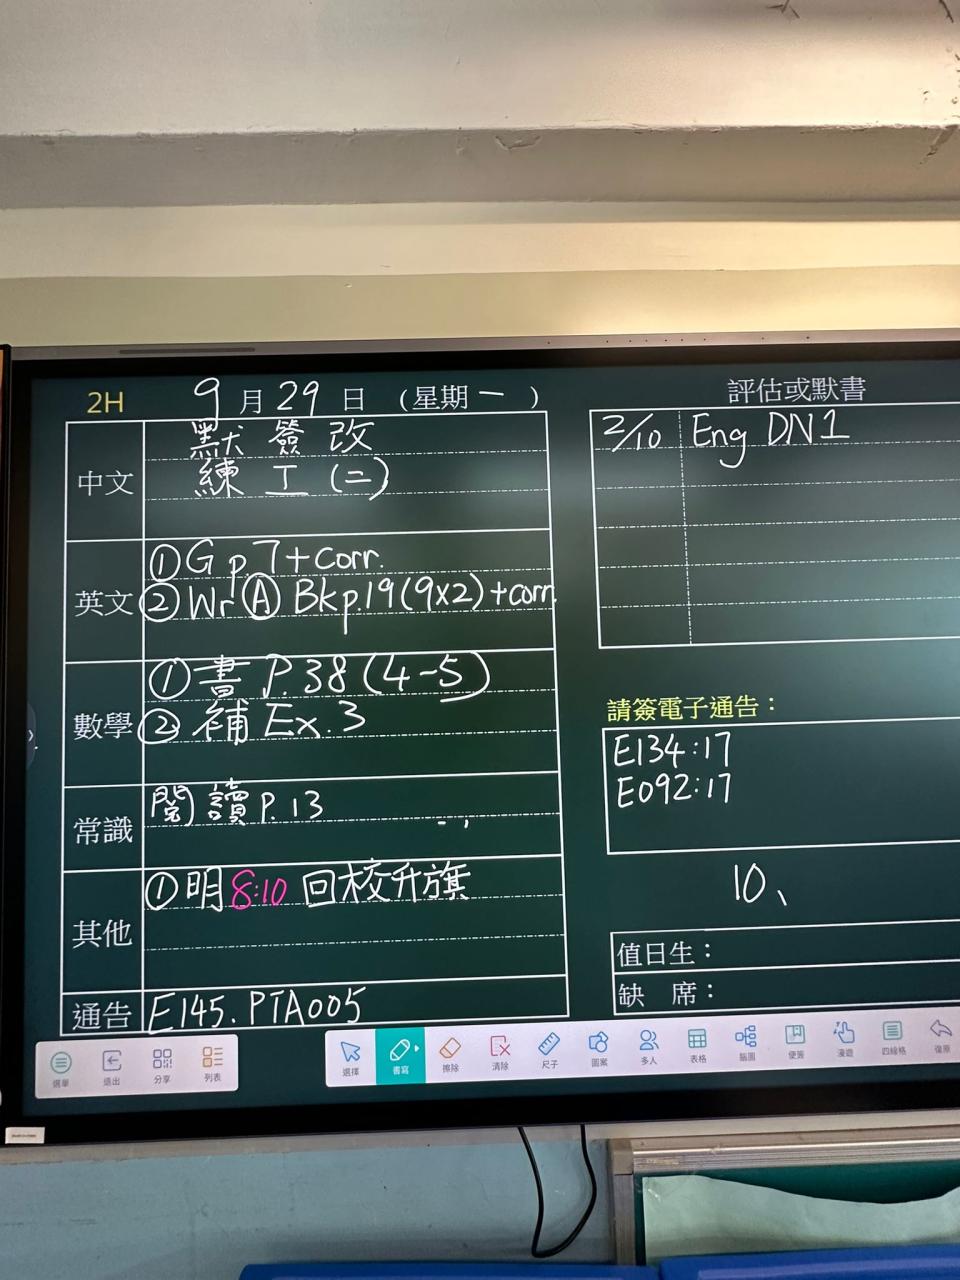 2H 9月29日 (星期一)
中文
默 簽 改
練 工 (二)
英文
① G p.7 + corr.
② Wr Ⓐ Bk p.19 (9x2) + corr.
數學
① 書 P.38 (4-5)
② 補 Ex.3
常識
閱讀 P.13
其他
① 明 8:10 回校升旗
通告
E145. PTA005
評估或默書
2/10 Eng DN1
請簽電子通告：
E134:17
E092:17
10、
值日生：
缺 席：
選單 退出 分享 列表
選擇 書寫 擦除 清除 尺子 圖案 多人 表格 腦圖 便簽 漫遊 四線格 復原